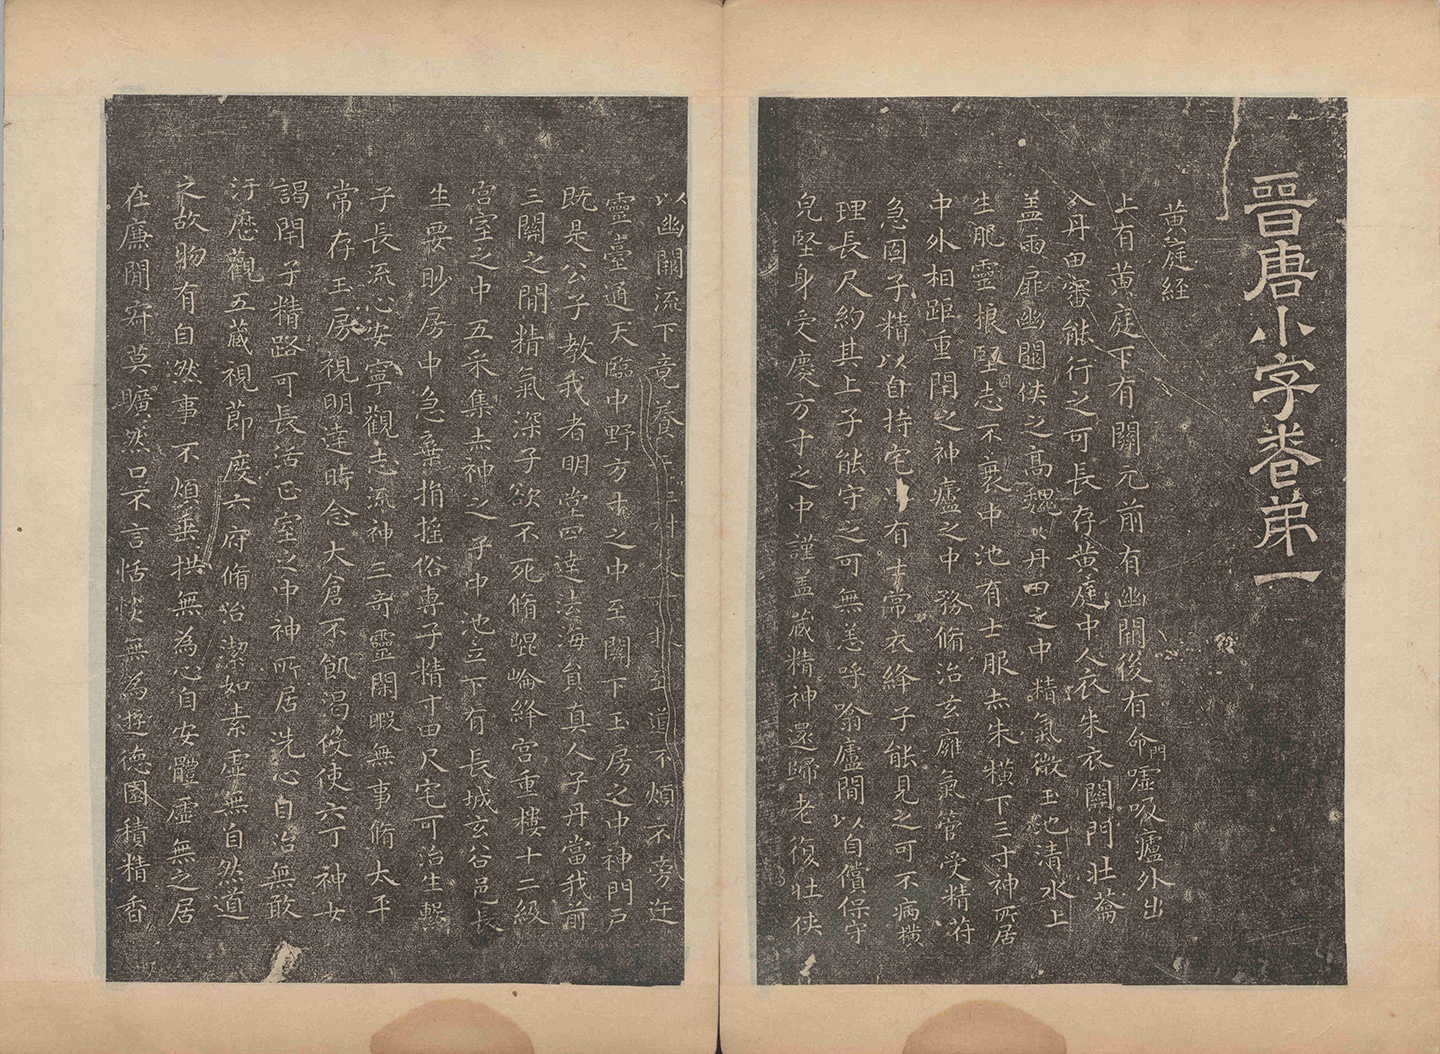 晉唐小字卷弟一
黃庭経
上有黃庭下有關元前有幽闕後有命門噓吸廬外出
入丹田審能行之可長存黃庭中人衣朱衣關門壯蘥
盖兩扉幽闕俠之高魏魏丹田之中精氣微玉池清水上
生肥靈根堅志不衰中池有士服赤朱橫下三寸神所居
中外相距重閇之神廬之中務脩治玄廱氣管受精符
急固子精以自持宅中有士常衣絳子能見之可不病橫
理長尺約其上子能守之可無恙呼噏廬閒以自償保守
皃堅身受慶方寸之中謹盖藏精神還歸老復壯俠
以幽闕流下竟養 至道不煩不旁迕
靈臺通天臨中野方寸之中至關下玉房之中神門戶
既是公子教我者明堂四達法海員真人子丹當我前
三關之閒精氣深子欲不死脩崐崘絳宮重樓十二級
宮室之中五采集赤神之子中池立下有長城玄谷邑長
生要眇房中急棄捐搖俗專子精寸田尺宅可治生繫
子長流心安寧觀志流神三奇靈閑暇無事脩太平
常存玉房視明達時念大倉不飢渴役使六丁神女
謁閇子精路可長活正室之中神所居洗心自治無敢
汙歷觀五藏視節度六府脩治潔如素虛無自然道
之故物有自然事不煩垂拱無為心自安體虛無之居
在廉閒寂莫曠然口不言恬惔無為遊德園積精香